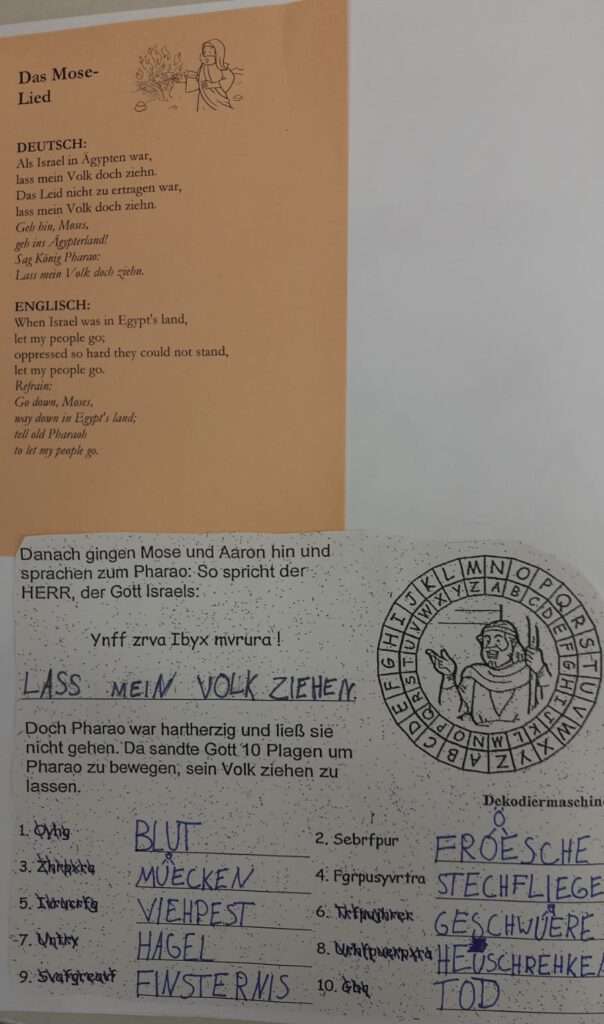 Das Mose-
Lied
DEUTSCH:
Als Israel in Ägypten war,
lass mein Volk doch ziehn.
Das Leid nicht zu ertragen war,
lass mein Volk doch ziehn.
Geh hin, Moses,
geh ins Ägypterland!
Sag König Pharao:
Lass mein Volk doch ziehn.
ENGLISCH:
When Israel was in Egypt's land,
let my people go;
oppressed so hard they could not stand,
let my people go.
Refrain:
Go down, Moses,
way down in Egypt's land;
tell old Pharaoh
to let my people go.
Danach gingen Mose und Aaron hin und
sprachen zum Pharao: So spricht der
HERR, der Gott Israels:
Ynff zrva Ibyx mvrura !
LASS MEIN VOLK ZIEHEN.
Doch Pharao war hartherzig und ließ sie
nicht gehen. Da sandte Gott 10 Plagen um
Pharao zu bewegen, sein Volk ziehen zu
lassen.
A B C D E F G H I J K L M N O P Q R S T U V W X Y Z
N O P Q R S T U V W X Y Z A B C D E F G H I J K L M
Dekodiermaschine
1. Oyhg BLUT
2. Sebrfpur FRÖESCHE
3. Zhrpxra MUECKEN
4. Fgrpusyvrtra STECHFLIEGE
5. Ivrucrfg VIEHPEST
6. Trfpujhrer GESCHWUERE
7. Untry HAGEL
8. Urhfpuerpxra HEUSCHREHKEN
9. Svafgreavf FINSTERNIS
10. Gbq TOD